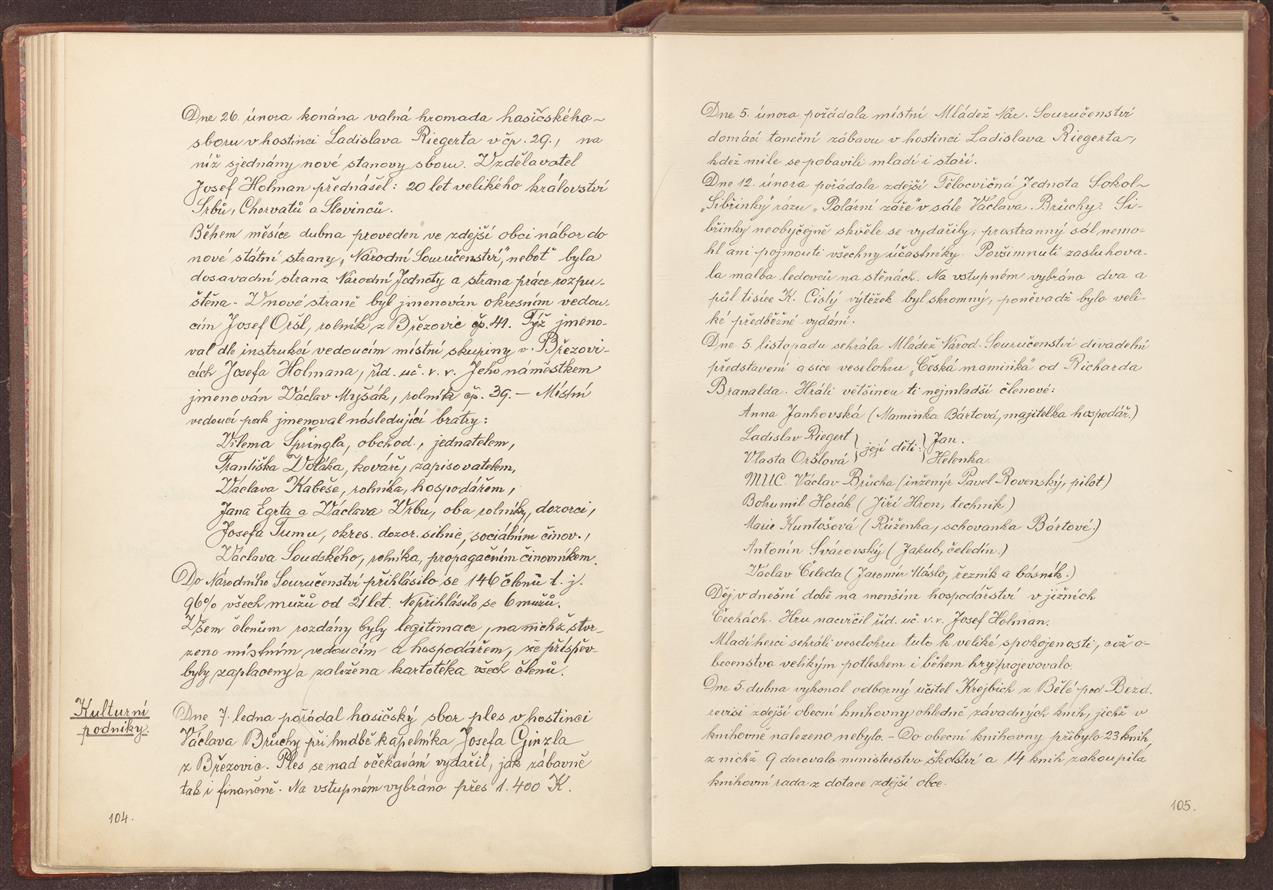 Dne 26. února konána valná hromada hasičského
sboru v hostinci Ladislava Riegerta v čp. 29., na
níž sjednány nové stanovy sboru. Vzdělavatel
Josef Holman přednášel: 20 let velikého království
Srbů, Chorvatů a Slovinců.
Během měsíce dubna proveden ve zdejší obci nábor do
nové státní strany, "Národní Souručenství", neboť byla
dosavadní strana Národní Jednoty a strana práce rozpu-
štěna. V nové straně byl jmenován okresním vedou-
cím Josef Oršl, rolník z Březovic čp. 41. Týž jmeno-
val dle instrukcí vedoucím místní skupiny v Březovi-
cích Josefa Holmana, říd. uč. v. v. Jeho náměstkem
jmenován Václav Myšák, rolník čp. 39. — Místní
vedoucí pak jmenoval následující bratry:
Vilema Špringla, obchod., jednatelem,
Františka Voláka, kováře, zapisovatelem,
Václava Kabeše, rolníka, hospodářem,
Jana Egrta a Václava Vrbu, oba rolníky, dozorci,
Josefa Tumu, okres. dozor. silnic, sociálním činov.,
Václava Soudského, rolníka, propagačním činovníkem.
Do Národního Souručenství přihlásilo se 146 členů t. j.
96% všech mužů od 21 let. Nepřihlásilo se 6 mužů.
Všem členům rozdány byly legitimace, na nichž stvr-
zeno místním vedoucím a hospodářem, že příspěv-
byly zaplaceny a založena kartotéka všech členů.
Kulturní
podniky.
Dne 7. ledna pořádal hasičský sbor ples v hostinci
Václava Brůchy při hudbě kapelníka Josefa Ginzla
z Březovic. Ples se nad očekávání vydařil, jak zábavně
tak i finančně. Na vstupném vybráno přes 1.400 K.
104.
Dne 5. února pořádala místní Mládež Nár. Souručenství
domácí taneční zábavu v hostinci Ladislava Riegerta,
kdež mile se pobavili mladí i staří.
Dne 12. února pořádala zdejší Tělocvičná Jednota Sokol
"Šibřinky" rázu "Polární záře" v sále Václava Brůchy. Ši-
břinky neobyčejně skvěle se vydařily, prostranný sál nemo-
hl ani pojmouti všechny účastníky. Povšimnutí zasluhova-
la malba ledovců na stěnách. Na vstupném vybráno dva a
půl tisíce K. Čistý výtěžek byl skromný, poněvadž bylo veli-
ké předběžné vydání.
Dne 5. listopadu sehrála Mládež Národ. Souručenství divadelní
představení a sice veselohru "Česká maminka" od Richarda
Branalda. Hráli většinou ti nejmladší členové:
Anna Jankovská (Maminka Bártová, majitelka hospodář.)
Ladislav Riegert } její děti: { Jan.
Vlasta Oršlová Helenka.
MUC. Václav Brůcha (inženýr Pavel Rovenský, pilot)
Bohumil Horák (Jiří Hron, technik)
Marie Kuntošová (Růženka, schovanka Bártové.)
Antonín Svárovský (Jakub, čeledín.)
Václav Čeleda (Jaromír Máslo, řezník a básník.)
Děj v dnešní době na menším hospodářství v jižních
Čechách. Hru nacvičil říd. uč. v. v. Josef Holman.
Mladí herci sehráli veselohru tuto k veliké spokojenosti, což o-
becenstvo velikým potleskem i během hry projevovalo.
Dne 5. dubna vykonal odborný učitel Krejbich z Bělé pod Bezd.
revisi zdejší obecní knihovny ohledně závadných knih, jichž v
knihovně nalezeno nebylo. - Do obecní knihovny přibylo 23 knih
z nichž 9 darovalo ministerstvo školství a 14 knih zakoupila
knihovní rada z dotace zdejší obce.
105.